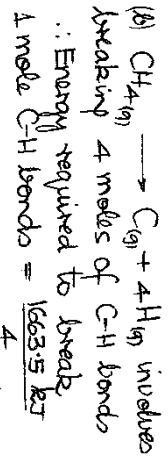 (b) CH₄(g) ⟶ C(g) + 4H(g) involves
breaking 4 moles of C-H bonds
∴ Energy required to break
1 mole C-H bonds = 1663·5 kJ / 4